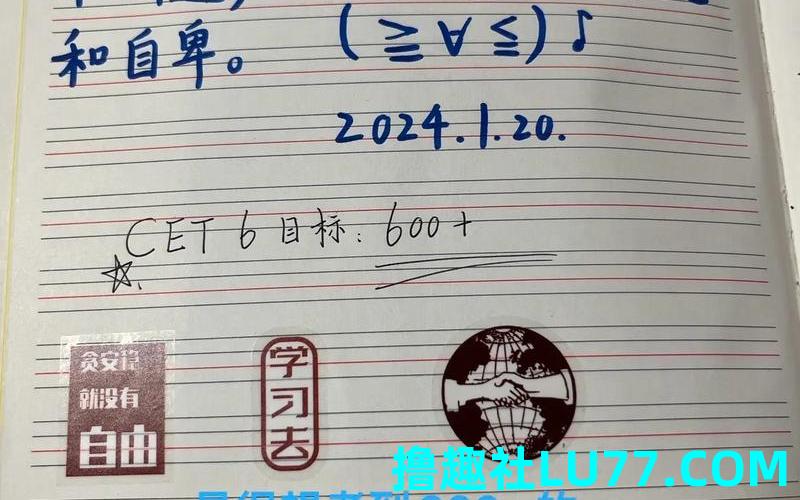 和自卑。 (≧∀≦)♪
2024.1.20.
CET 6 目标: 600+
贪安稳
就没有
自由
学习去
撸趣社LU77.COM